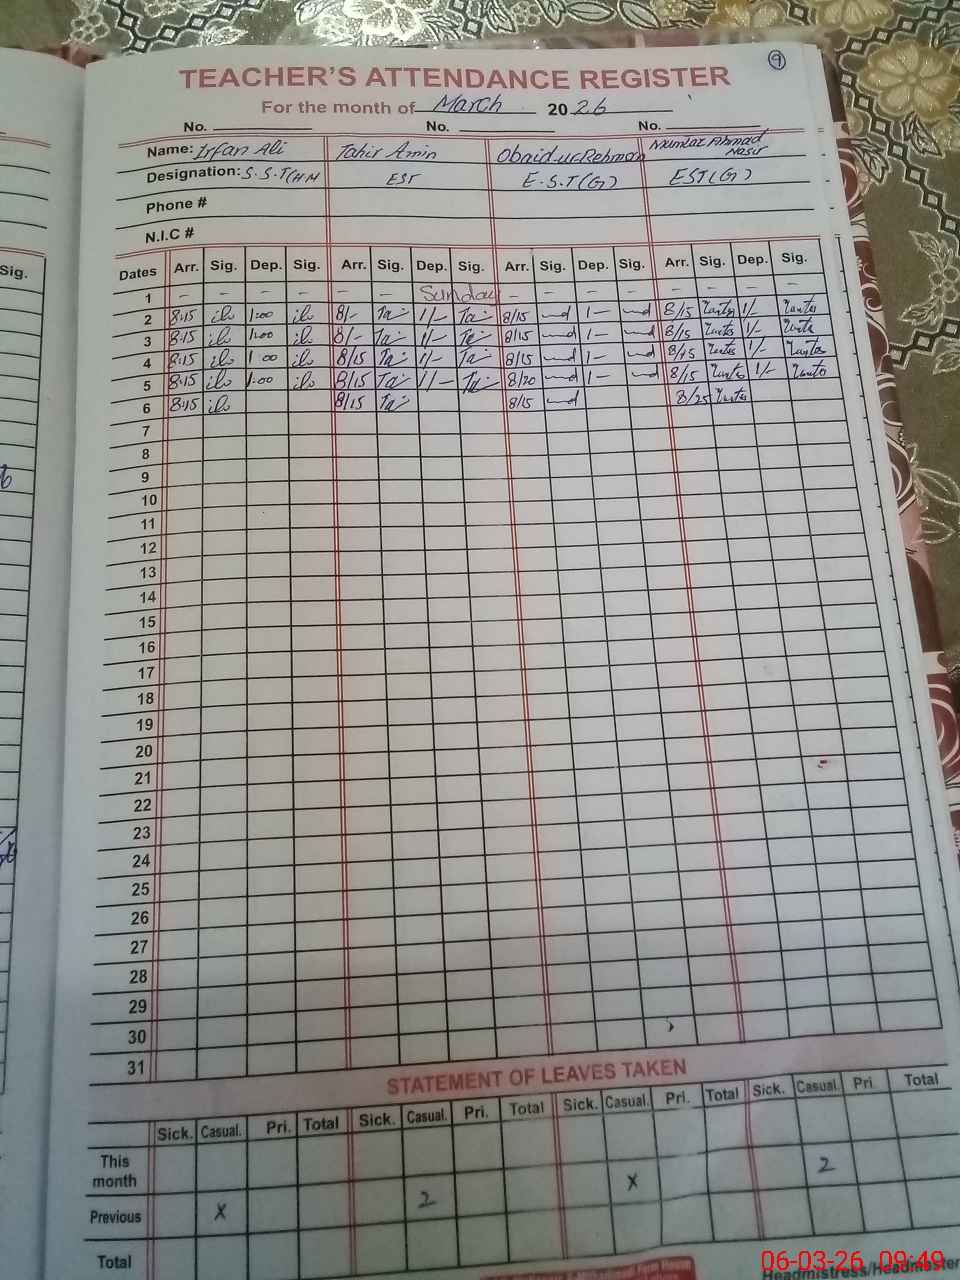 9
TEACHER'S ATTENDANCE REGISTER
For the month of March 2026
No. No. No.
Name: Irfan Ali Tahir Amin Obaid-ur-Rehman Mumtaz Ahmad Nasir
Designation: S.S.T(HM EST E.S.T(G) EST(G)
Phone #
N.I.C #
Sig.
Dates Arr. Sig. Dep. Sig. Arr. Sig. Dep. Sig. Arr. Sig. Dep. Sig. Arr. Sig. Dep. Sig.
1 - - - - - - Sunday - - - - - - - -
2 8:15 1:00 8/- 1/- 8/15 1- 8/15 1/-
3 8:15 1:00 8/- 1/- 8/15 1- 8/15 1/-
4 8:15 1:00 8/15 1/- 8/15 1- 8/15 1/-
5 8:15 1:00 8/15 1/- 8/20 1- 8/15 1/-
6 8:15 8/15 8/15 8/25
7
8
9
10
11
12
13
14
15
16
17
18
19
20
21
22
23
24
25
26
27
28
29
30
31
STATEMENT OF LEAVES TAKEN
Sick. Casual. Pri. Total Sick. Casual. Pri. Total Sick. Casual. Pri. Total Sick. Casual. Pri. Total
This month 2
Previous x 2 x
Total
Headmistress/Headmaster
06-03-26 09:49